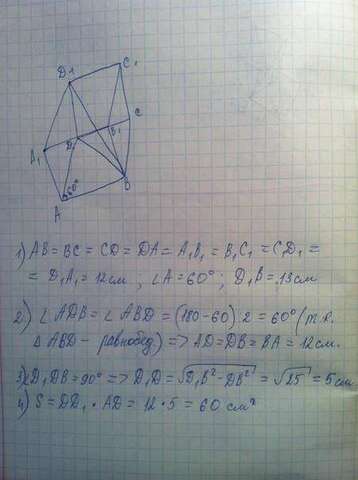 D1
C1
C
B1
D
A1
60°
A
B
1) AB = BC = CD = DA = A1B1 = B1C1 = C1D1 =
= D1A1 = 12см ; ∠A = 60° ; D1B = 13см
2) ∠ADB = ∠ABD = (180-60) 2 = 60° (т.к.
Δ ABD - равнобед) => AD = DB = BA = 12см.
3) ∠D1DB = 90° => D1D = √D1B² - DB² = √25 = 5см
4) S = DD1 • AD = 12 • 5 = 60 см²